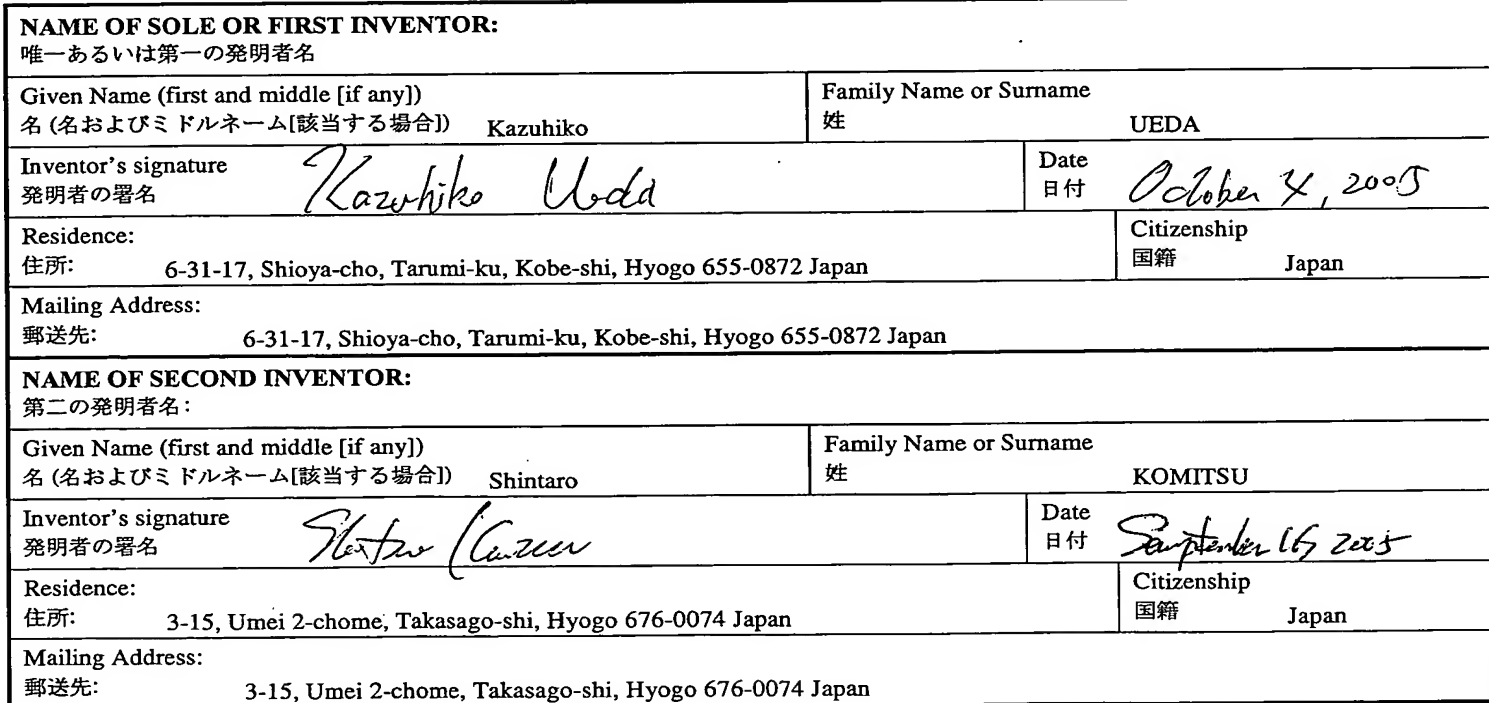 NAME OF SOLE OR FIRST INVENTOR:
唯一あるいは第一の発明者名
Given Name (first and middle [if any])
名 (名およびミドルネーム[該当する場合]) Kazuhiko
Family Name or Surname
姓 UEDA
Inventor's signature
発明者の署名 Kazuhiko Ueda
Date
日付 October 4, 2005
Residence:
住所: 6-31-17, Shioya-cho, Tarumi-ku, Kobe-shi, Hyogo 655-0872 Japan
Citizenship
国籍 Japan
Mailing Address:
郵送先: 6-31-17, Shioya-cho, Tarumi-ku, Kobe-shi, Hyogo 655-0872 Japan
NAME OF SECOND INVENTOR:
第二の発明者名:
Given Name (first and middle [if any])
名 (名およびミドルネーム[該当する場合]) Shintaro
Family Name or Surname
姓 KOMITSU
Inventor's signature
発明者の署名
Date
日付 2005
Residence:
住所: 3-15, Umei 2-chome, Takasago-shi, Hyogo 676-0074 Japan
Citizenship
国籍 Japan
Mailing Address:
郵送先: 3-15, Umei 2-chome, Takasago-shi, Hyogo 676-0074 Japan